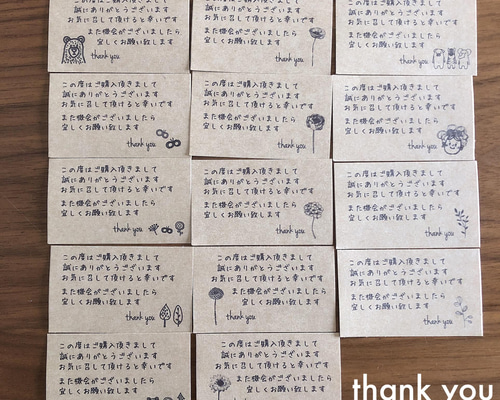 この度はご購入頂きまして
誠にありがとうございます
お気に召して頂けると幸いです
また機会がございましたら
宜しくお願い致します
thank you
この度はご購入頂きまして
誠にありがとうございます
お気に召して頂けると幸いです
また機会がございましたら
宜しくお願い致します
thank you
誠にありがとうございます
お気に召して頂けると幸いです
また機会がございましたら
宜しくお願い致します
thank you
この度はご購入頂きまして
誠にありがとうございます
お気に召して頂けると幸いです
また機会がございましたら
宜しくお願い致します
thank you
この度はご購入頂きまして
誠にありがとうございます
お気に召して頂けると幸いです
また機会がございましたら
宜しくお願い致します
thank you
この度はご購入頂きまして
誠にありがとうございます
お気に召して頂けると幸いです
また機会がございましたら
宜しくお願い致します
thank you
この度はご購入頂きまして
誠にありがとうございます
お気に召して頂けると幸いです
また機会がございましたら
宜しくお願い致します
thank you
この度はご購入頂きまして
誠にありがとうございます
お気に召して頂けると幸いです
また機会がございましたら
宜しくお願い致します
thank you
この度はご購入頂きまして
誠にありがとうございます
お気に召して頂けると幸いです
また機会がございましたら
宜しくお願い致します
thank you
この度はご購入頂きまして
誠にありがとうございます
お気に召して頂けると幸いです
また機会がございましたら
宜しくお願い致します
thank you
この度はご購入頂きまして
誠にありがとうございます
お気に召して頂けると幸いです
また機会がございましたら
宜しくお願い致します
thank you
この度はご購入頂きまして
誠にありがとうございます
お気に召して頂けると幸いです
また機会がございましたら
宜しくお願い致します
thank you
この度はご購入頂きまして
誠にありがとうございます
お気に召して頂けると幸いです
また機会がございましたら
宜しくお願い致します
この度はご購入頂きまして
誠にありがとうございます
お気に召して頂けると幸いです
また機会がございましたら
宜しくお願い致します
thank you